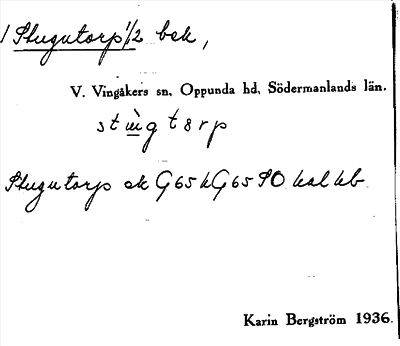 1 Stugutorp 1/2 bek,
V. Vingåkers sn, Oppunda hd, Södermanlands län.
Stugutorp ek G65 kG65 SO kal kb
Karin Bergström 1936.